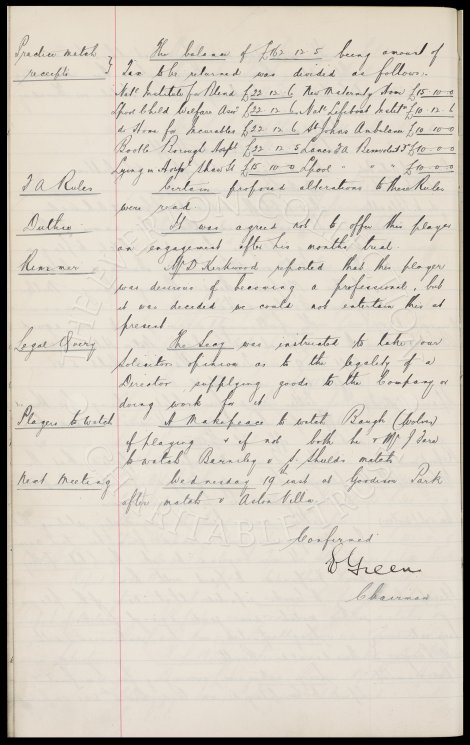 Practice match
receipts
The balance of £162.12.5 being amount of
Tax to be returned was divided as follows.
Natl Institute for Blind £22.12.6 New Maternity Home £15.10.0
Lpool Child Welfare Assn £22.12.6 Natl Lifeboat Instn £10.12.6
do Home for Incurables £22.12.6 St Johns Ambulance £10.10.0
Bootle Borough Hospl £22.12.5 Lancs FA Benevolent £10.0.0
Lying in Hospl Shaw St £15.10.0 Lpool " " " £10.0.0
F A Rules
Certain proposed alterations to these Rules
were read.
Duthie
It was agreed not to offer this player
an engagement after his months trial.
Rimmer
Mr D Kirkwood reported that this player
was desirous of becoming a professional, but
it was decided we could not entertain this at
present
Legal Query
The Secy was instructed to take our
Solicitors opinion as to the legality of a
Director supplying goods to the Company or
doing work for it
Players to Watch
A Makepeace to watch Baugh (Wolves)
if playing & if not both he & Mr J Fare
to watch Barnsley v S. Shields match
Next Meeting
Wednesday 19th inst at Goodison Park
after match v Aston Villa.
Confirmed
W Green
Chairman